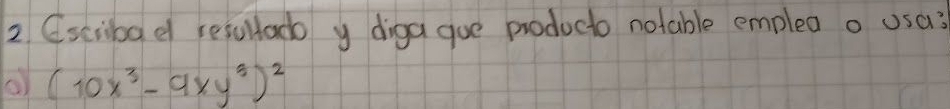 2. Escriba el resultado y diga que producto notable emplea o usa:
a) (10x³ - 9xy⁵)²